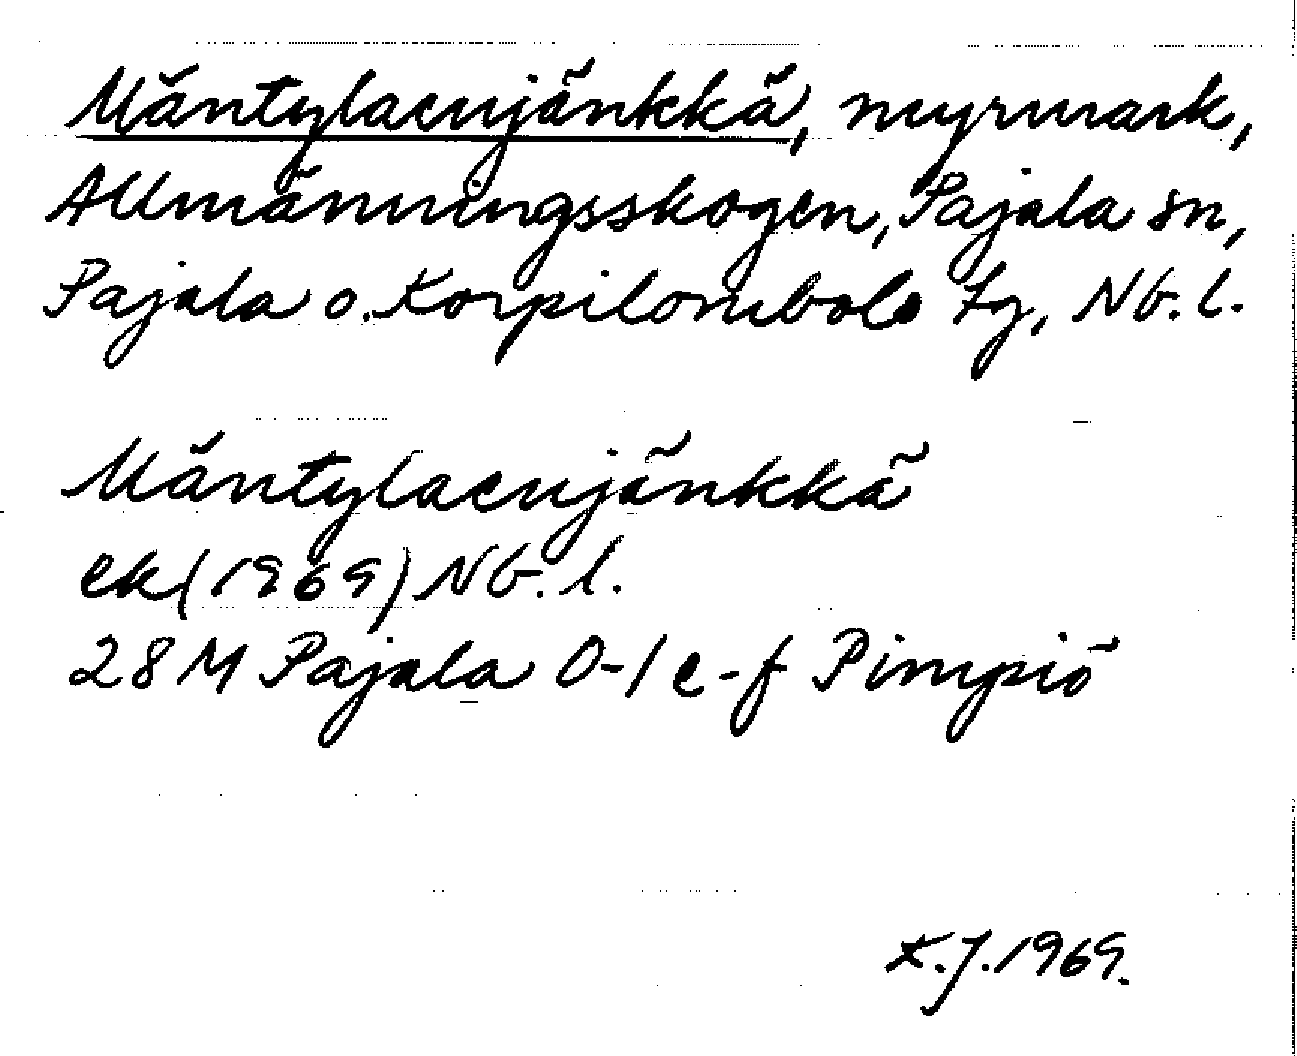 Mäntylaenjänkkä, myrmark,
Allmänningsskogen, Pajala sn,
Pajala o. Korpilombolo tg, Nb. l.
Mäntylaenjänkkä
ek (1969) Nb. l.
28 M Pajala 0-1 e-f Pimpiö
K.J. 1969.